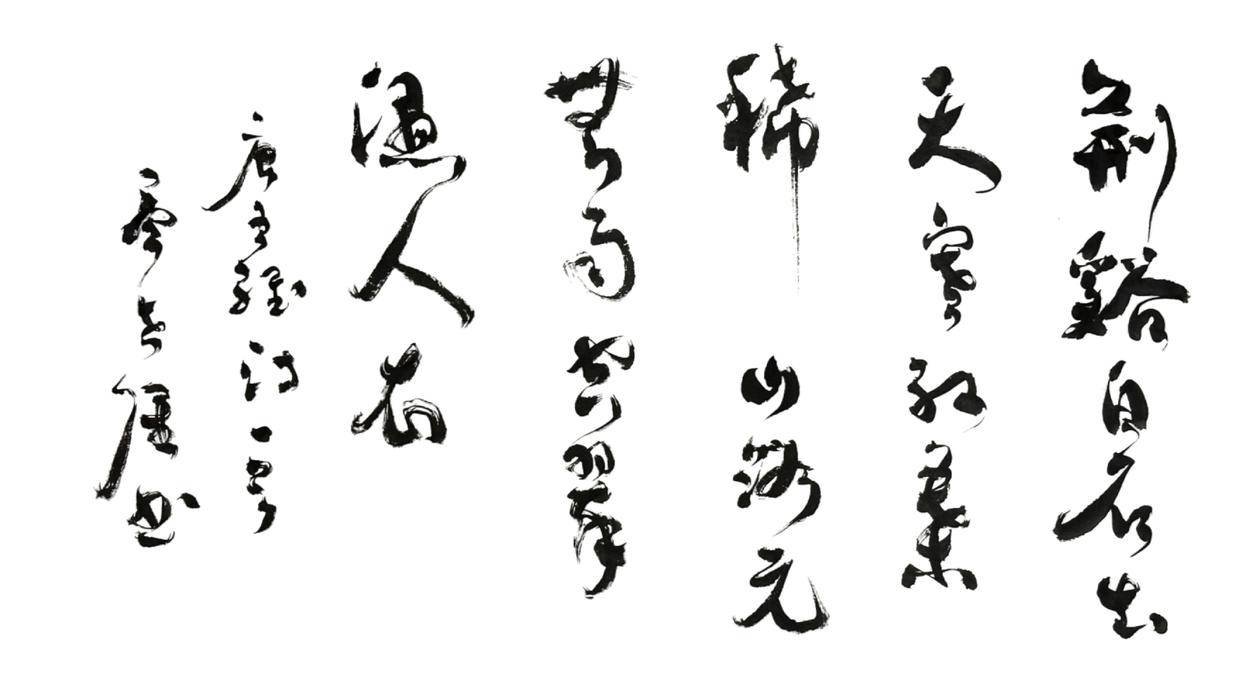 荊谿白石出
天寒紅葉
稀山路元
無雨空翠
濕人衣
唐王維詩一首
書